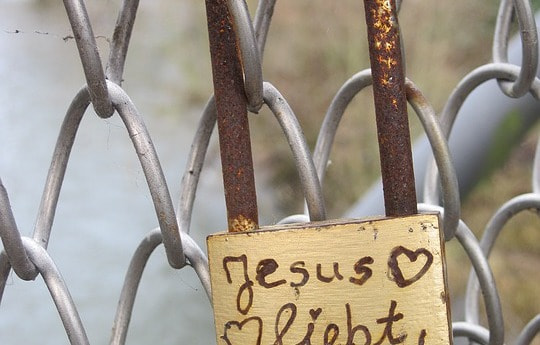 Jesus ♡
♡ liebt